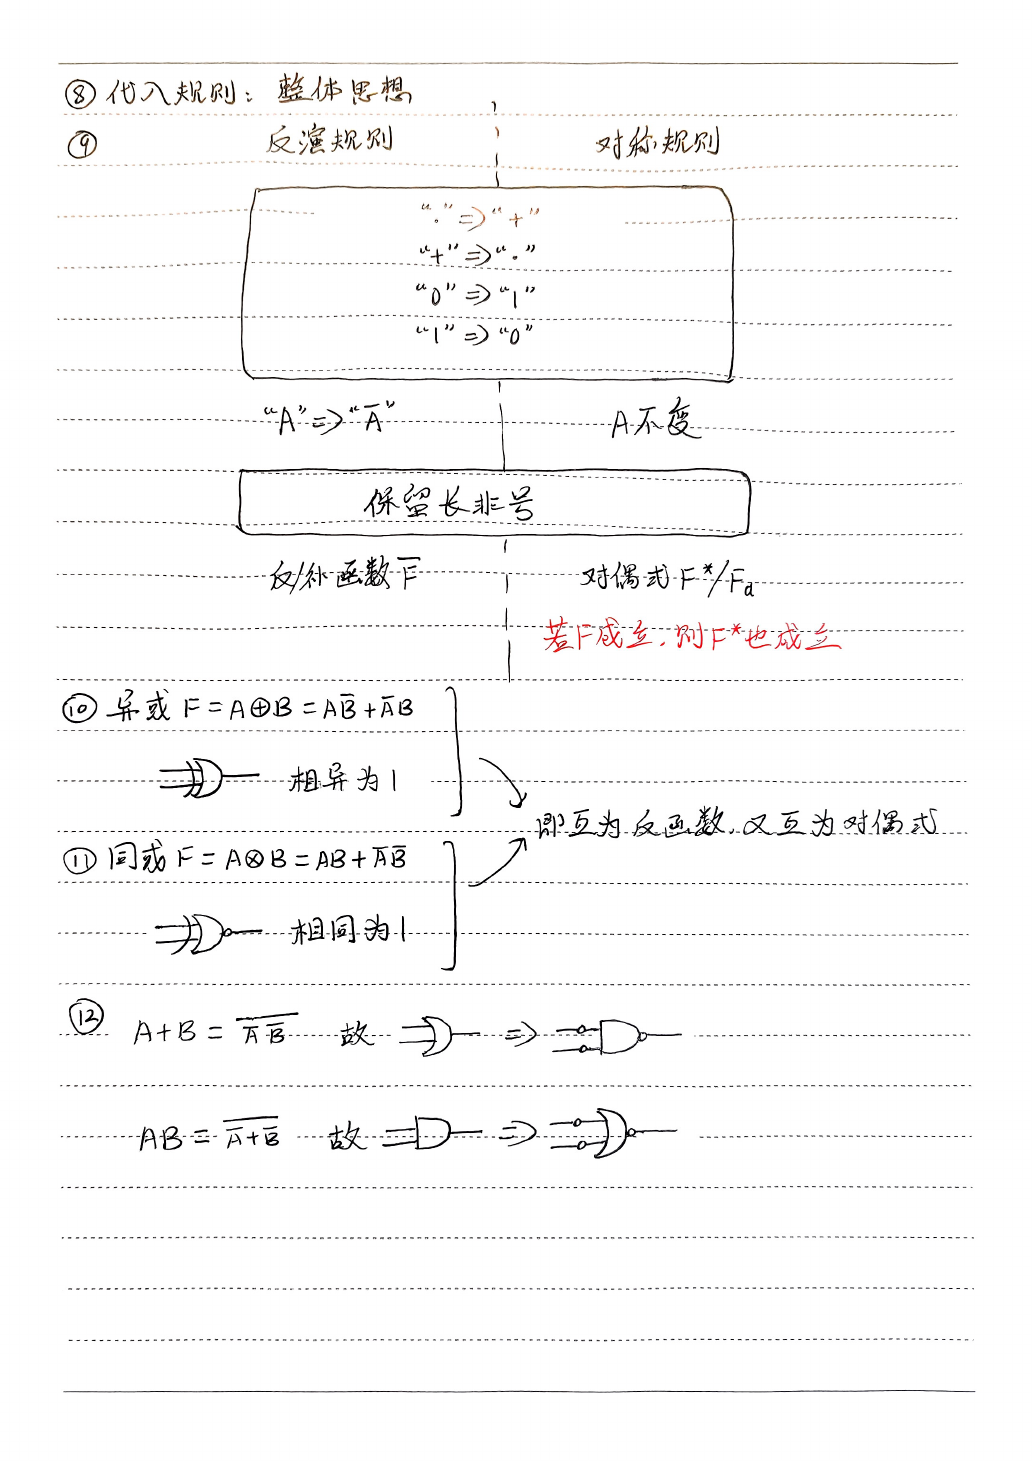 ⑧ 代入规则：整体思想
⑨ 反演规则 对称规则
“·”⇒“+”
“+”⇒“·”
“0”⇒“1”
“1”⇒“0”
“A”⇒“A̅” A不变
保留长非号
反/补函数 F̅ 对偶式 F*/Fd
若F成立，则F*也成立
⑩ 异或 F=A⊕B=AB̅+A̅B
相异为1
即互为反函数，又互为对偶式
⑪ 同或 F=A⊗B=AB+A̅B̅
相同为1
⑫ A+B=\overline{A̅ B̅} 故 ⇒
AB=\overline{A̅+B̅} 故 ⇒